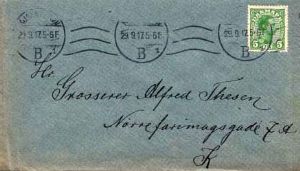 29.9.17.5-6E. 29.9.17.5-6F. 29.9.17.5-6F.
B B B
DANMARK
5 5
Hr. Grosserer Alfred Thesen
Nørrefarimagsgade 7 A
K